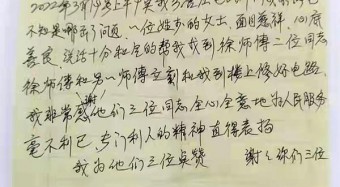 2022年3月19号上午
不知是哪出了问题,一位姓少的女士,面目慈祥,心底
善良,说话十分和气的帮我找到徐师傅二位同志
徐师傅和另一师傅立刻和我到楼上修好电路,
我非常感谢他们三位同志全心全意地为人民服务
毫不利己,专门利人的精神值得表扬
我为他们三位点赞 谢谢你们三位